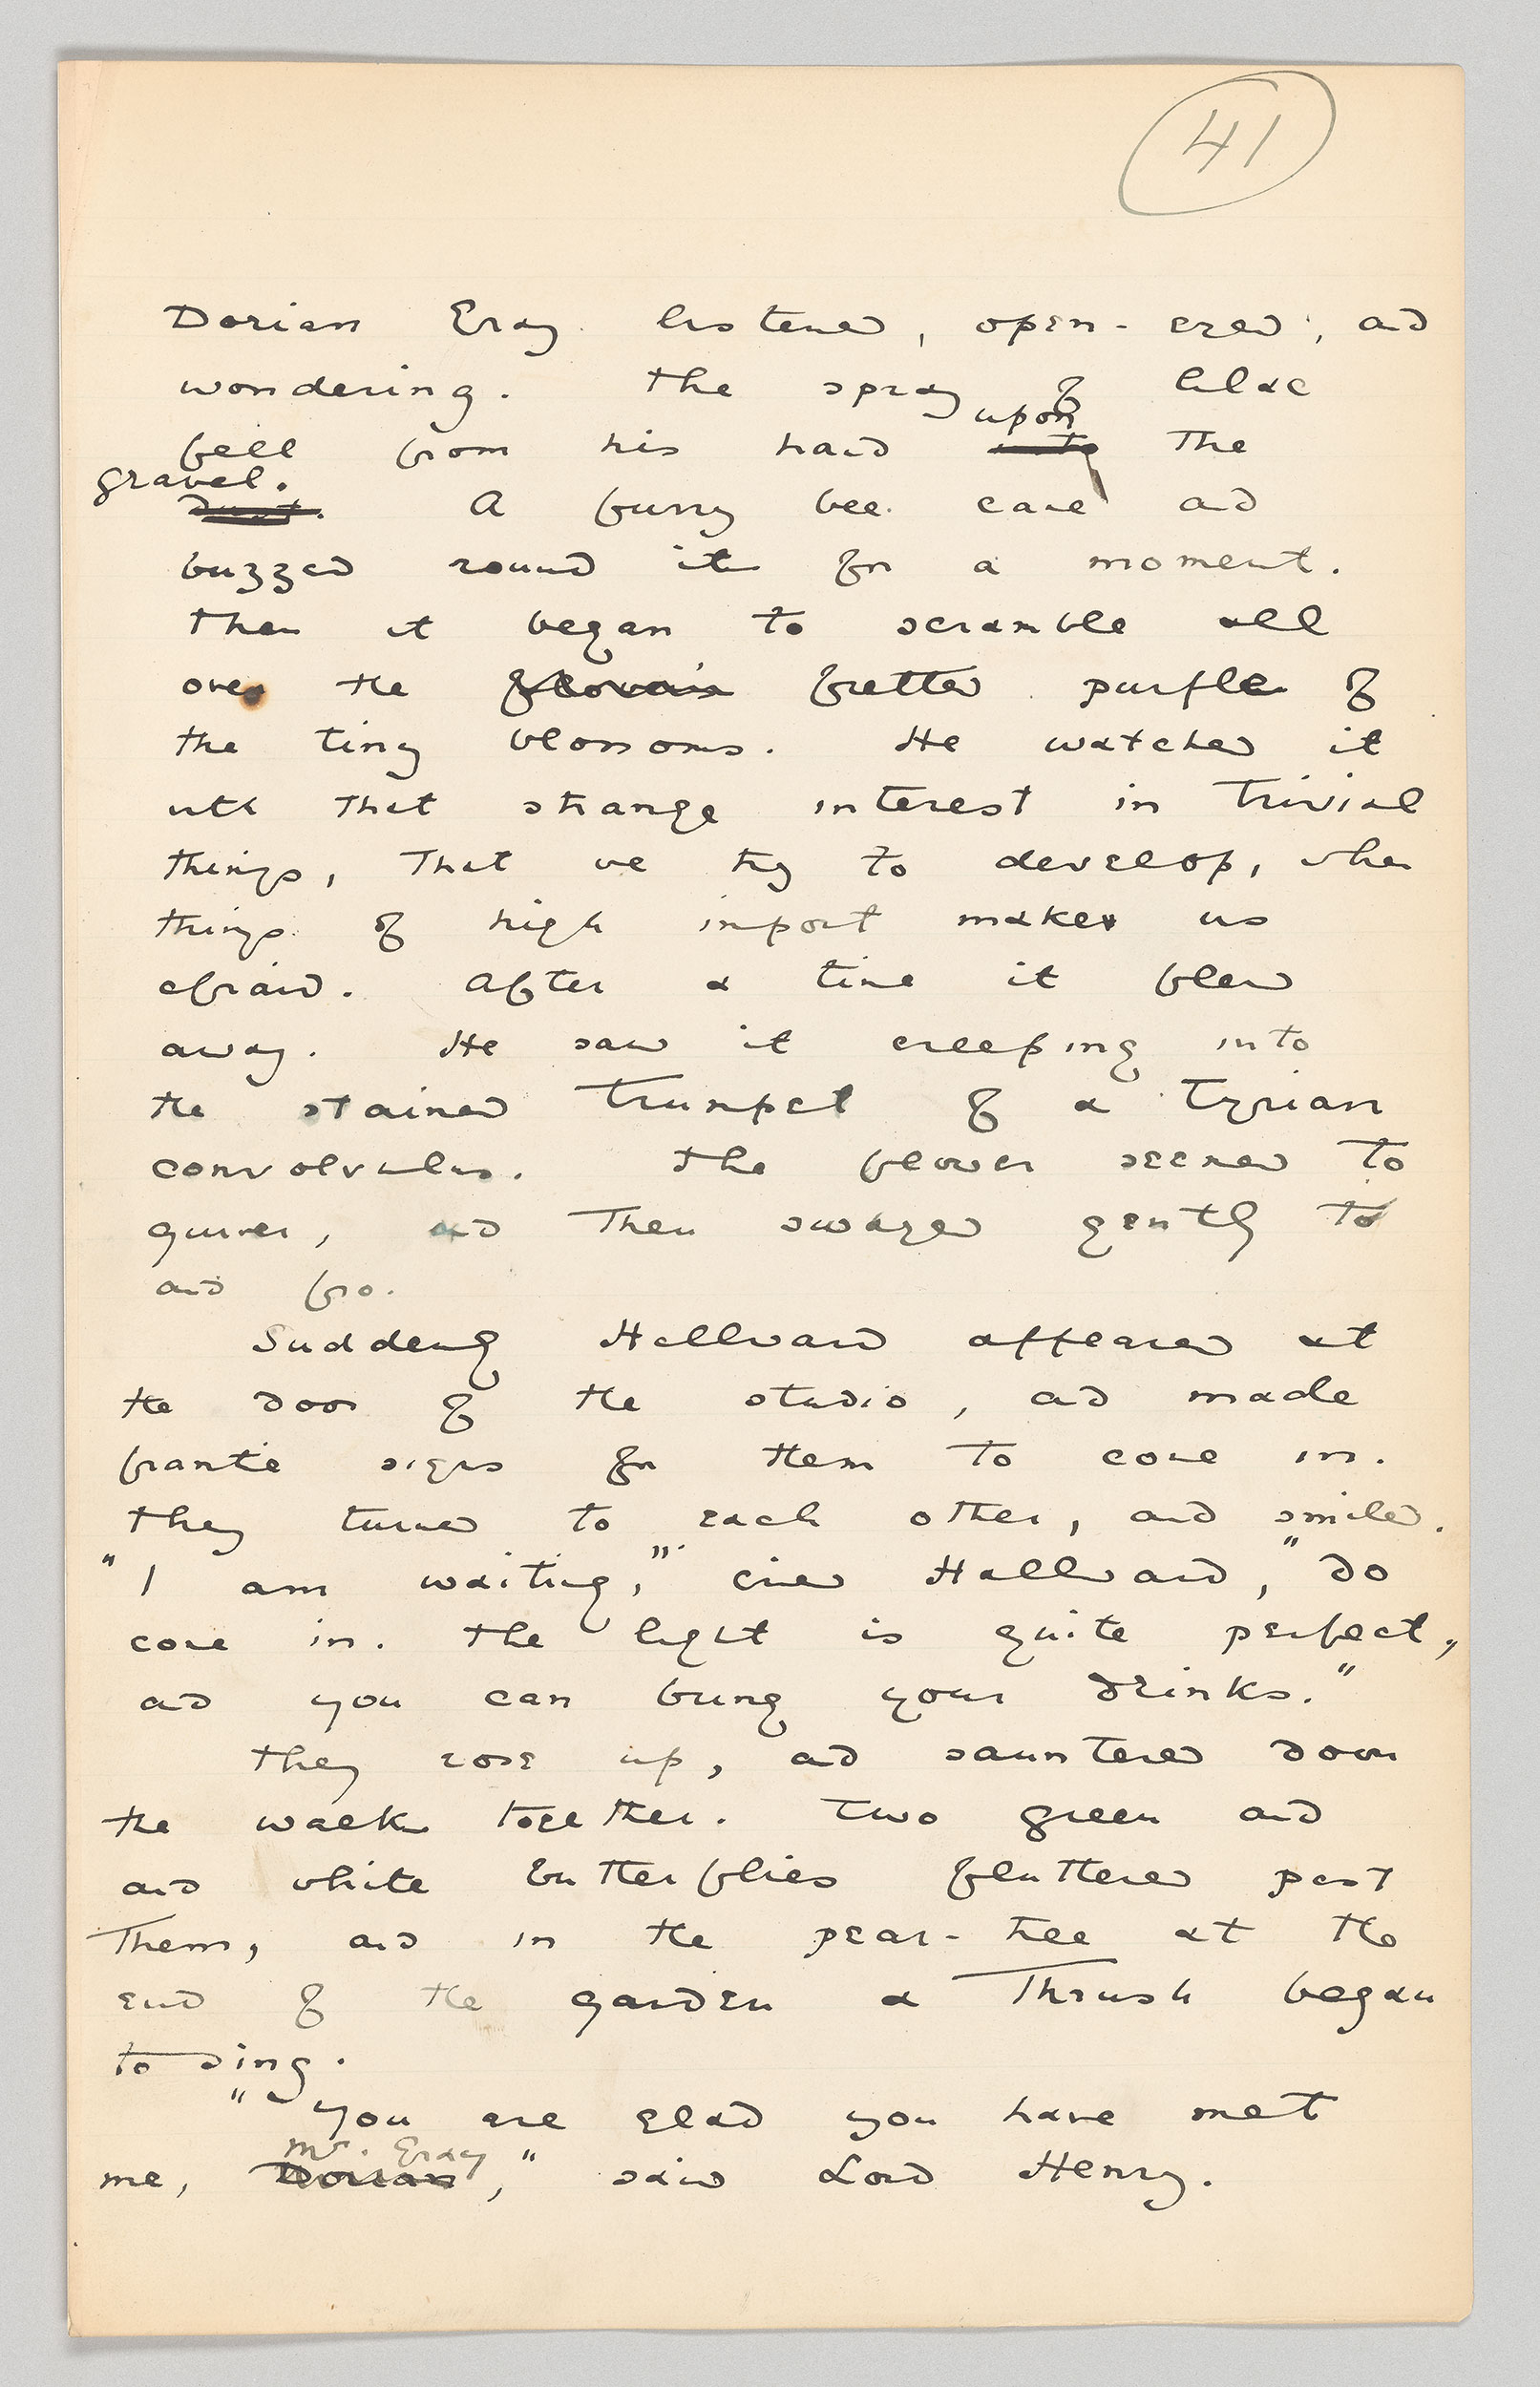 41
Dorian Gray listened, open-eyed, and
wondering. The spray of lilac
upon
fell from his hand into the
gravel.
dust. A furry bee came and
buzzed round it for a moment.
Then it began to scramble all
over the fretted purple of
the tiny blossoms. He watched it
with that strange interest in trivial
things, that we try to develop, when
things of high import make us
afraid. After a time it flew
away. He saw it creeping into
the stained trumpet of a Tyrian
convolvulus. The flower seemed to
quiver, and then swayed gently to
and fro.
Suddenly Hallward appeared at
the door of the studio, and made
frantic signs for them to come in.
They turned to each other, and smiled.
"I am waiting," cried Hallward, "do
come in. The light is quite perfect,
and you can bring your drinks."
They rose up, and sauntered down
the walk together. Two green and
and white butterflies fluttered past
them, and in the pear-tree at the
end of the garden a thrush began
to sing.
"You are glad you have met
Mr. Gray
me, Dorian," said Lord Henry.